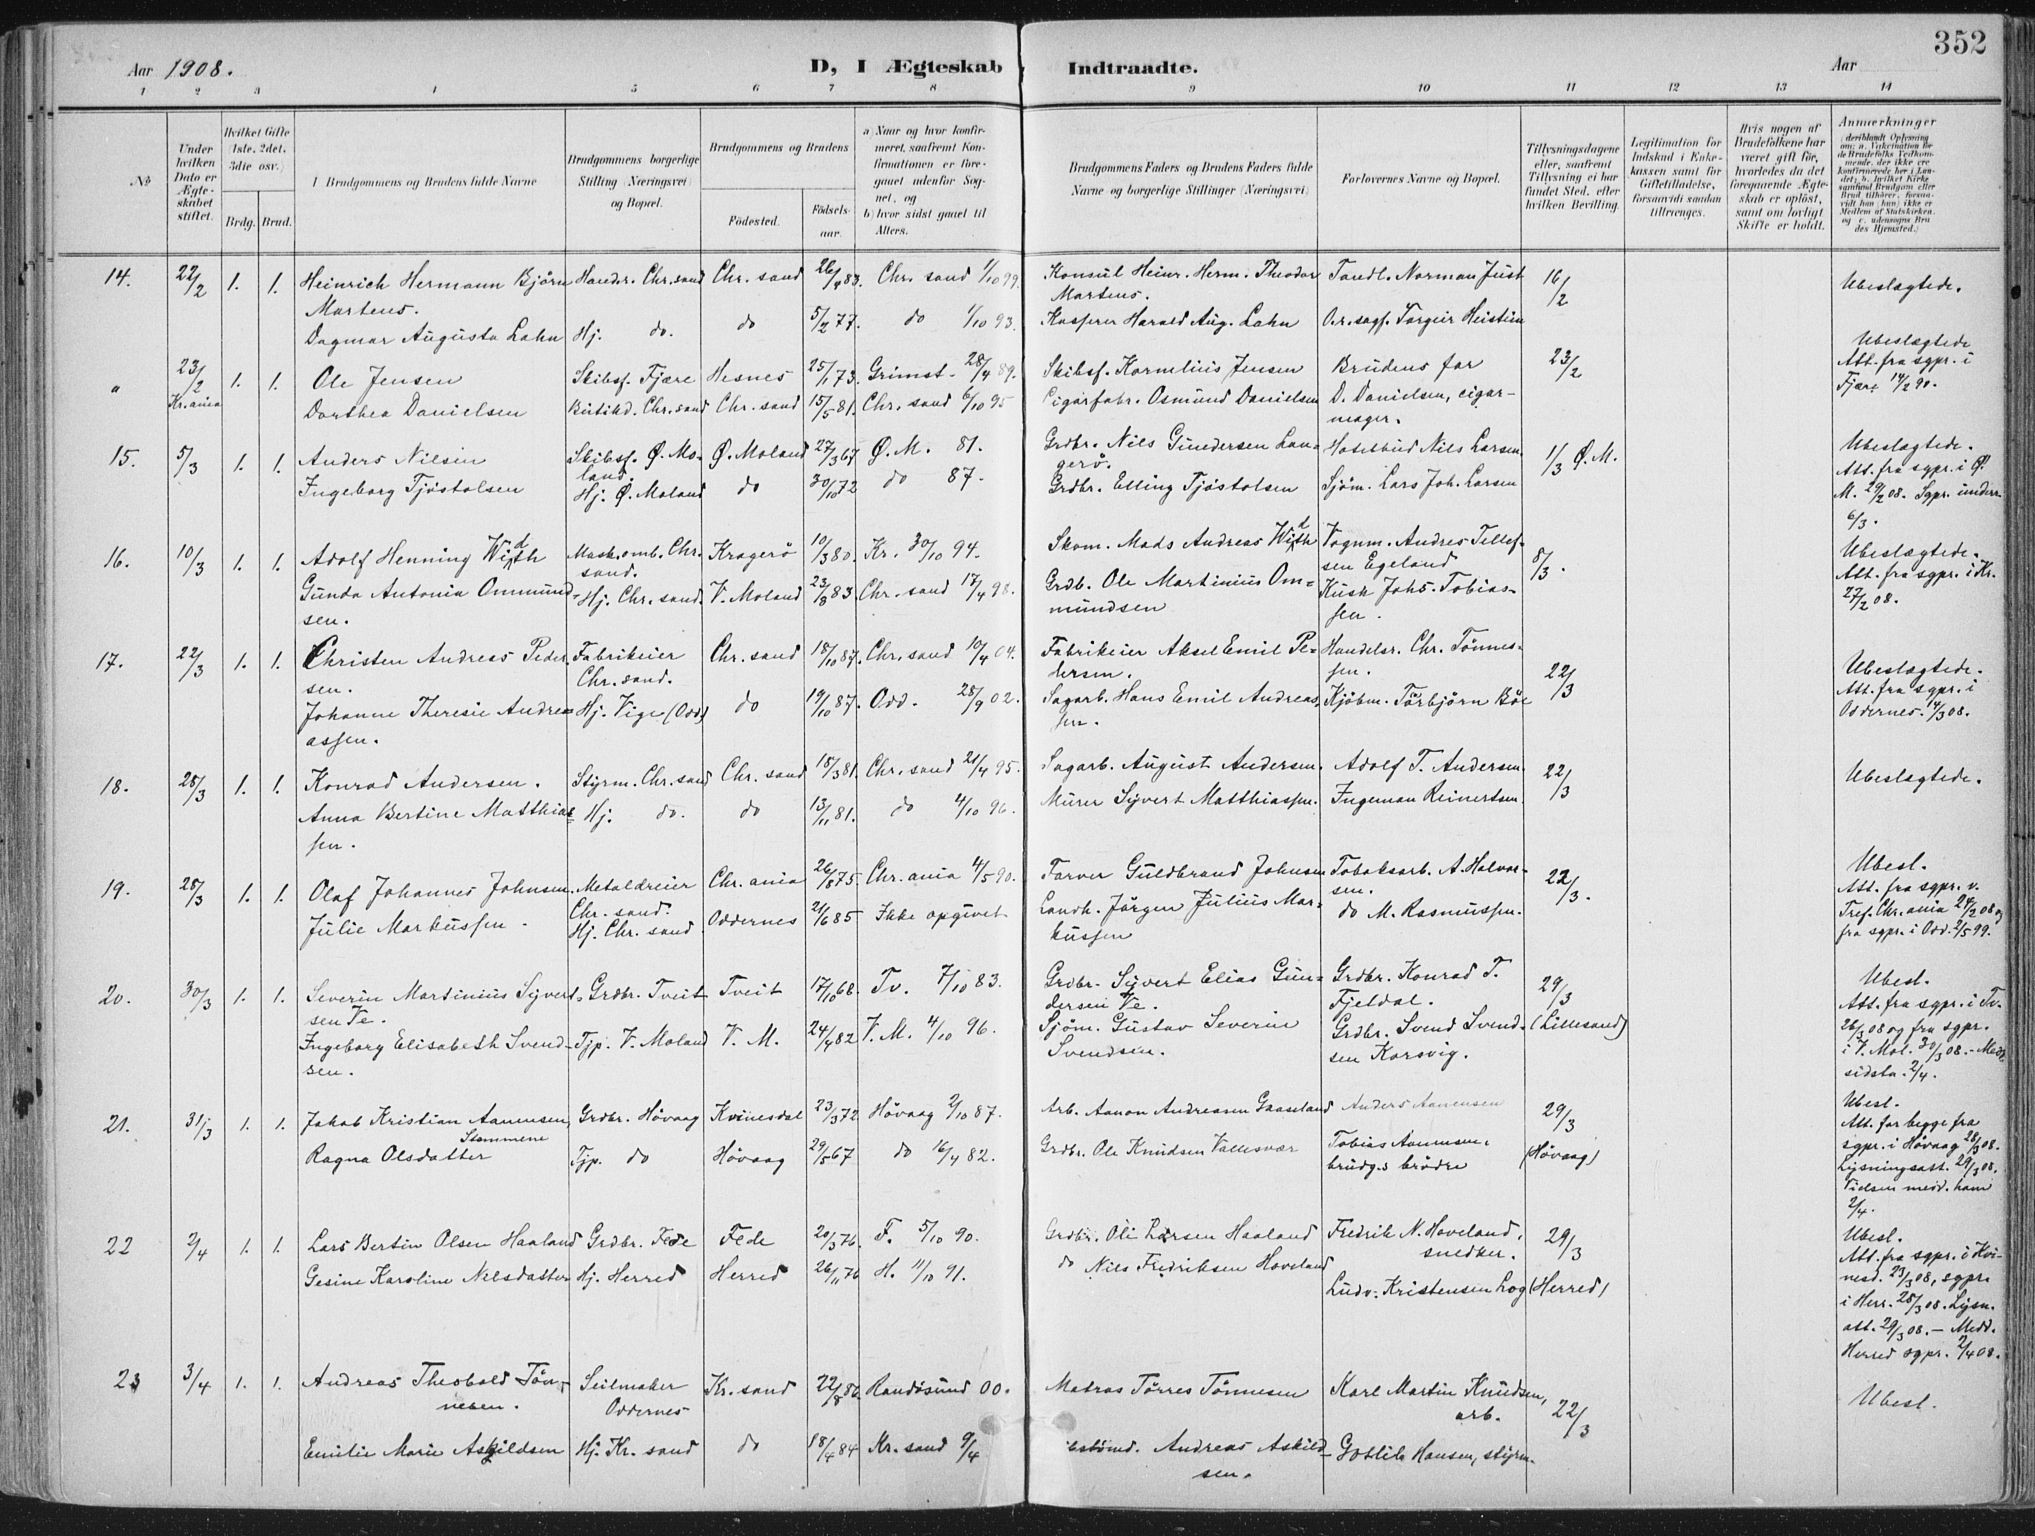 352
Aar 1908.
D, I Ægteskab Indtraadte.
Aar
1 2 3 4 5 6 7 8 9 10 11 12 13 14
No
Under hvilken Dato er Ægteskabet stiftet.
Hvilket Gifte (1ste, 2det, 3die osv.)
Brdg. Brud.
Brudgommens og Brudens fulde Navne
Brudgommens borgerlige Stilling (Næringsvei) og Bopæl.
Brudgommens og Brudens
Födested. Födselsaar.
a) Naar og hvor konfirmeret, saafremt Konfirmationen er foregaaet udenfor Sognet, og
b) hvor sidst gaaet til Alters.
Brudgommens Faders og Brudens Faders fulde Navne og borgerlige Stillinger (Næringsvei)
Forlovernes Navne og Bopæl.
Tillysningsdagene eller, saafremt Tillysning ei har fundet Sted, efter hvilken Bevilling.
Legitimation for Indskud i Enkekassen samt for Giftetilladelse, forsaavidt saadan tiltrænges.
Hvis nogen af Brudefolkene har været gift før, hvorledes da det foregaaende Ægteskab er opløst, samt om lovligt Skifte er holdt.
Anmærkninger
14. 22/2 1. 1. Heinrich Hermann Björn Handsr. Chr.sand Chr. sand 26/4 83. Chr. sand 1/10 99. Konsul Heinr. Herm. Theodor Tandl. Norman Just 16/2 Ubeslægtede.
Martens. Martens.
Dagmar Augusta Lahn Hj. do. do 5/2 77. do 1/10 93. Kasserer Harald Aug. Lahn O.r.sagf. Torgeir Heistein
" 23/2 Kr.ania 1. 1. Ole Jensen Skibsf. Fjære Hesnes 25/1 73. Grimst. 28/4 89. Skibsf. Kornelius Jensen Brudens far 23/2 Ubeslægtede
Att. fra sgpr. i
Fjære 14/2 90.
Dorthea Danielsen Butikd. Chr.sand Chr. sand 15/5 81. Chr. sand 6/10 95 Cigarfabr. Osmund Danielsen D. Danielsen, cigar-
mager.
15. 5/3 1. 1. Anders Nilsen Skibsf. Ø. Mo- Ø. Moland 27/3 67 Ø. M. 81. Grdbr. Nils Gundersen Lan- Hotelbud Nils Larsen 1/3 Ø. M. Ubeslægtede.
land. gerö. Att. fra sgpr. i Ø.
Ingeborg Tjöstolsen Hj. Ø. Moland do 30/10 72 do 87. Grdbr. Elling Tjöstolsen Sjöm. Lars Joh. Larsen M. 29/2 08. Sgpr. underr.
6/3.
16. 10/3 1. 1. Adolf Henning Width Mask.omb. Chr. Kragerö 10/3 80. Kr. 30/10 94. Skom. Mads Andreas Width Vognm. Andres Tellef- 8/3. Ubeslægtede.
sand. sen Egeland Att. fra sgpr. i Kr.
Gunda Antonia Ommund- Hj. Chr. sand. V. Moland 23/8 83. Chr. sand 17/4 98. Grdb. Ole Martinius Om- Kusk Johs. Tobias- 27/2 08.
sen. mundsen sen.
17. 22/3 1. 1. Christen Andreas Peder- Fabrikeier Chr. sand 18/10 87. Chr. sand 10/4 04. Fabrikeier Aksel Emil Pe- Handelsr. Chr. Tönnes- 22/3 Ubeslægtede.
sen. Chr. sand. dersen. sen. Att. fra sgpr. i
Johanne Theresie Andre- Hj. Vige (Odd) do 19/10 87. Odd. 28/9 02. Sagarb. Hans Emil Andreas- Kjöbm. Torbjörn Böe Oddernes. 4/3 08.
assen. sen.
18. 28/3 1. 1. Konrad Andersen. Styrm. Chr. sand Chr. sand 18/3 81. Chr. sand 21/4 95. Sagarb. August Andersen. Adolf T. Andersen. 22/3 Ubeslægtede.
Anna Bertine Matthias- Hj. do. do 13/11 81. do 4/10 96. Murer Sijvert Matthiassen. Ingeman Reinertsen.
sen.
19. 28/3 1. 1. Olaf Johannes Johnsen. Metaldreier Chr. ania 26/8 75. Chr. ania 4/5 90. Farver Guldbrand Johnsen Tobaksarb. A. Halvor- 22/3. Ubesl.
Chr. sand. sen. Att. fra sgpr. v.
Julie Markussen. Hj. Chr. sand Oddernes 21/6 85 Ikke opgivet Landh. Jörgen Julius Mar- do M. Rasmussen. Tref. Chr.ania 24/2 08 og
kussen fra sgpr. i Odd. 2/5 99.
20. 30/3 1. 1. Severin Martinius Sijvert- Grdbr. Tveit Tveit 17/10 68. Tv. 7/10 83. Grdbr. Sijvert Elias Gun- Grdbr. Konrad T. 29/3 Ubesl.
sen Ve. dersen Ve. Fjeldal. Att. fra sgpr. i Tv.
Ingeborg Elisabeth Svend- Tjp. V. Moland V. M. 24/4 82 V. M. 4/10 96. Sjöm. Gustav Severin Grdbr. Svend Svend- (Lillesand) 26/3 08 og fra sgpr.
sen. Svendsen. sen Korsvig. i V. Mol. 30/3 08. - Medd.
sidste. 2/4.
21. 31/3 1. 1. Jakob Kristian Aanensen Grdbr. Hövaag Kvinesdal 23/3 72 Hövaag 2/10 87. Arb. Aanon Andreasen Gaaseland Anders Aanensen 29/3 Ubesl.
Stemmene Att. for begge fra
Ragna Olsdatter Tjp. do Hövaag 29/5 67 do 16/4 82. Grdbr. Ole Knudsen Vallesvær Tobias Aanensen. (Hövaag) sgpr. i Hövaag 28/3 08.
brudg.s brödre Lysningsatt. 29/3 08.
Vielsen medd. ham
2/4.
22 2/4 1. 1. Lars Bertin Olsen Haaland Grdbr. Fede Fede 20/3 76. F. 5/10 90. Grdbr. Ole Larsen Haaland Fredrik N. Hoveland, 29/3 Ubesl.
snedker. Att. fra sgpr. i Kvi-
Gesine Karoline Nilsdatter Hj. Herred Herred 26/11 76 H. 11/10 91. do Nils Fredriksen Hoveland Ludv. Kristensen Log (Herred) nesd. 23/3 08, sgpr.
i Herr. 28/3 08. Lysn.
att. 29/3 08. - Medd.
Herred sgpr. 2/4 08.
23 3/4 1. 1. Andreas Theobald Tön- Seilmaker Kr. sand 22/8 86. Randösund 00. Matros Törres Tönnesen Karl Martin Knudsen, 22/3 Ubesl.
nesen. Oddernes arb.
Emilie Marie Askildsen Hj. Kr. sand do 18/4 84 Kr. sand 9/4 Andreas Askild- Gotlib Hansen, styrm.
sen.